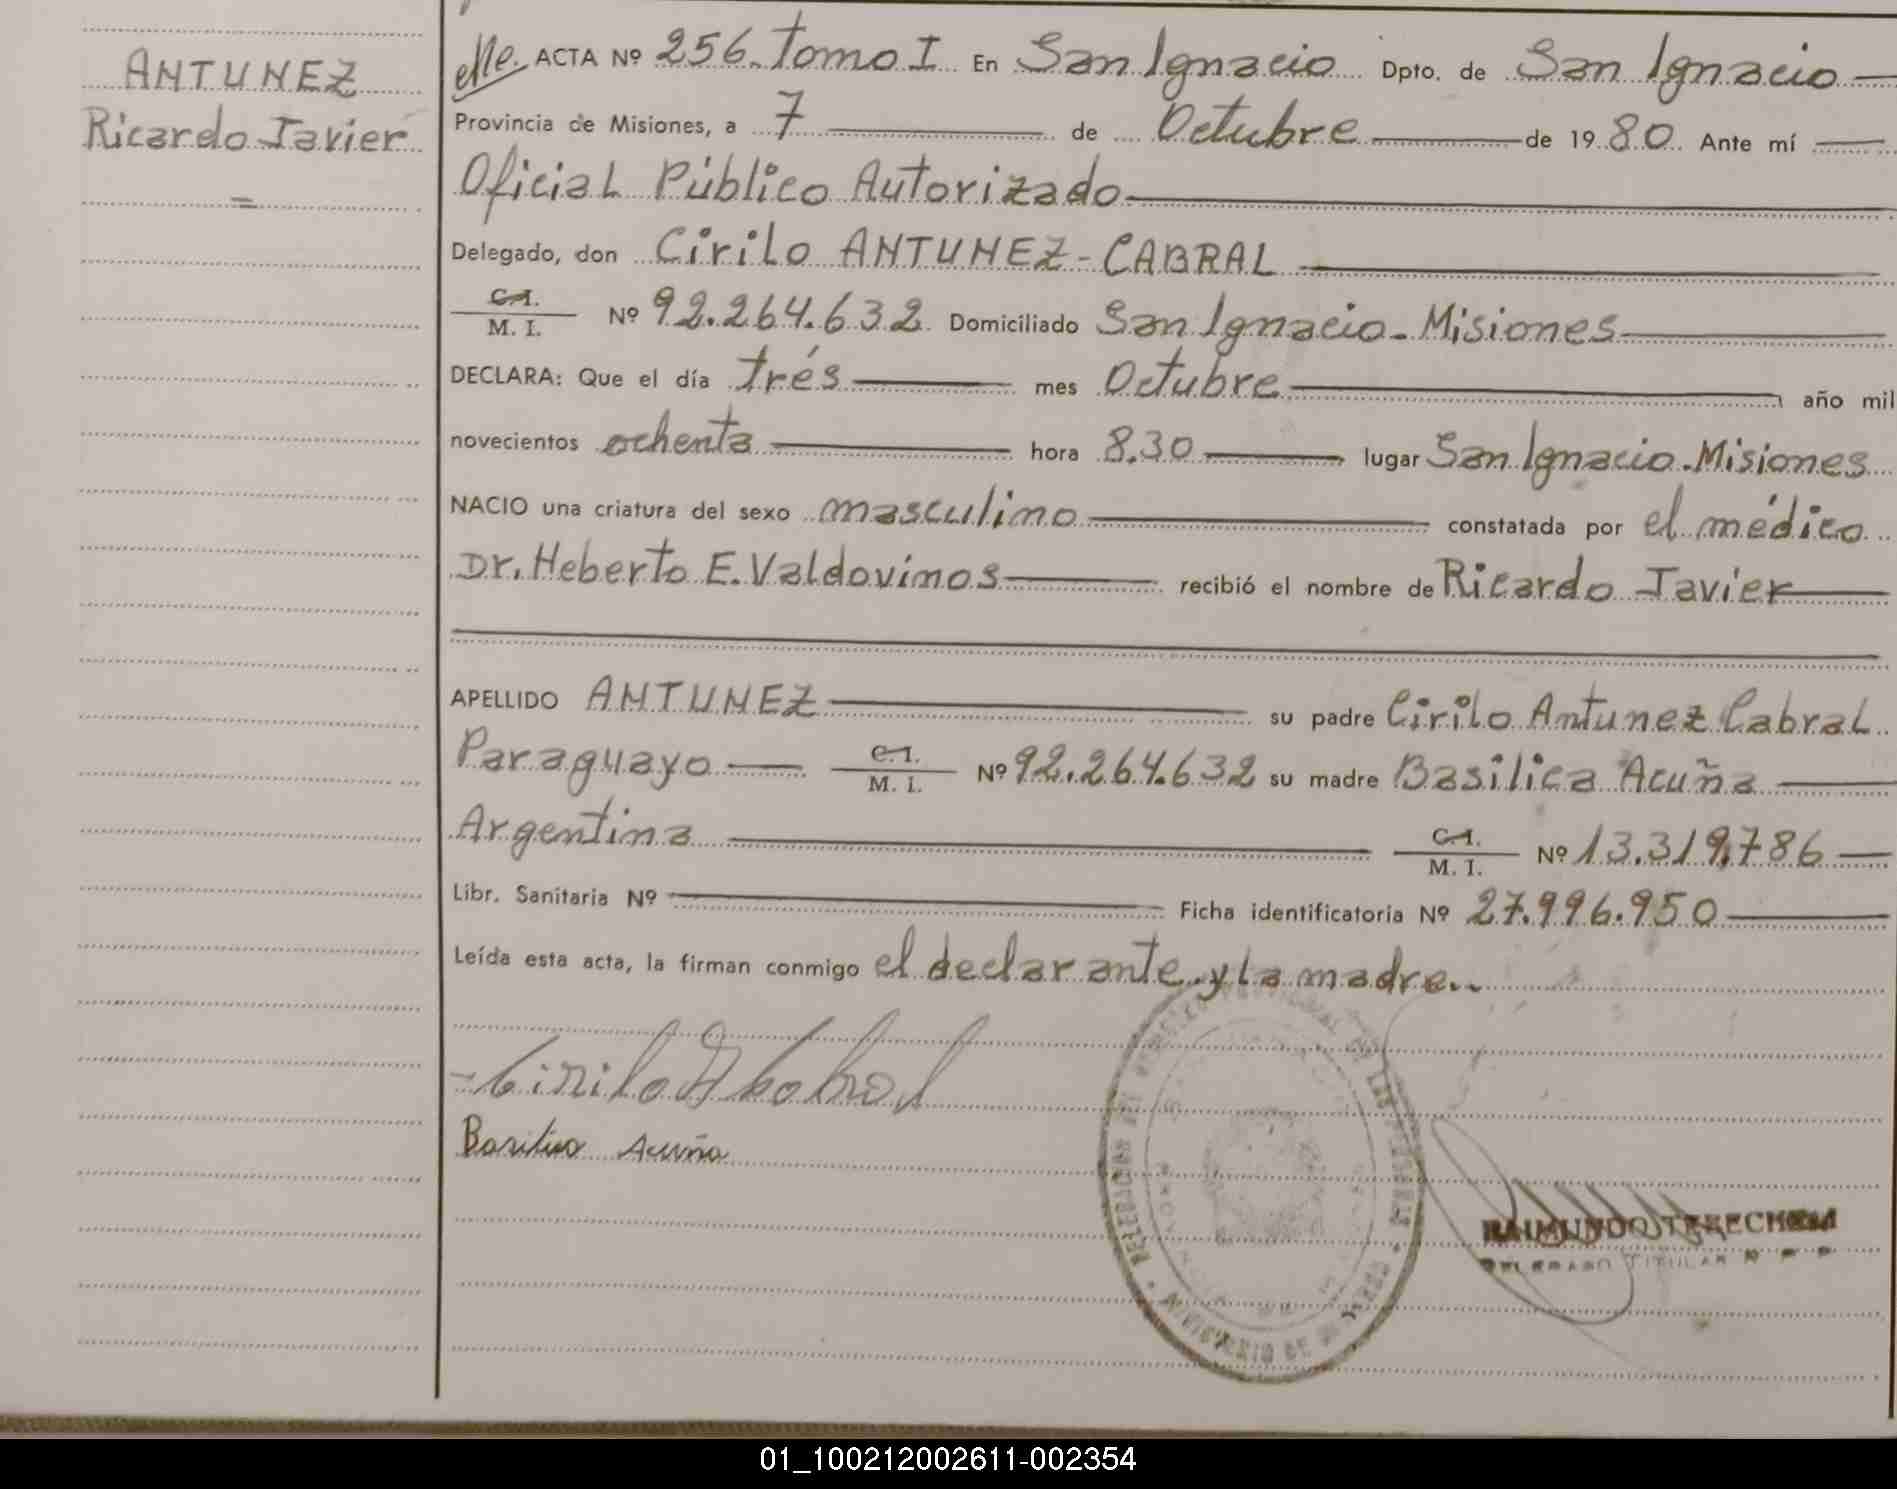 ANTUNEZ
Ricardo Javier
=
ACTA Nº 256. Tomo I En San Ignacio Dpto. de San Ignacio
Provincia de Misiones, a 7 de Octubre de 19 80. Ante mí
Oficial Público Autorizado
Delegado, don Cirilo ANTUNEZ - CABRAL
C.I.
M. I. Nº 92.264.632 Domiciliado San Ignacio - Misiones
DECLARA: Que el día trés mes Octubre año mil
novecientos ochenta hora 8.30 lugar San Ignacio. Misiones
NACIO una criatura del sexo masculino constatada por el médico
Dr. Heberto E. Valdovinos recibió el nombre de Ricardo Javier
APELLIDO ANTUNEZ su padre Cirilo Antunez Cabral
Paraguayo C.I. M. I. Nº 92.264.632 su madre Basilica Acuña
Argentina C.I. M. I. Nº 13.319.786
Libr. Sanitaria Nº Ficha identificatoria Nº 27.996.950
Leída esta acta, la firman conmigo el declarante y la madre..
Cirilo A Cabral
Basilica Acuña
DELEGACION DEL REGISTRO PROVINCIAL DE LAS PERSONAS
MINISTERIO DE
RAIMUNDO TERECHEM
DELEGADO TITULAR R P P
01_100212002611-002354